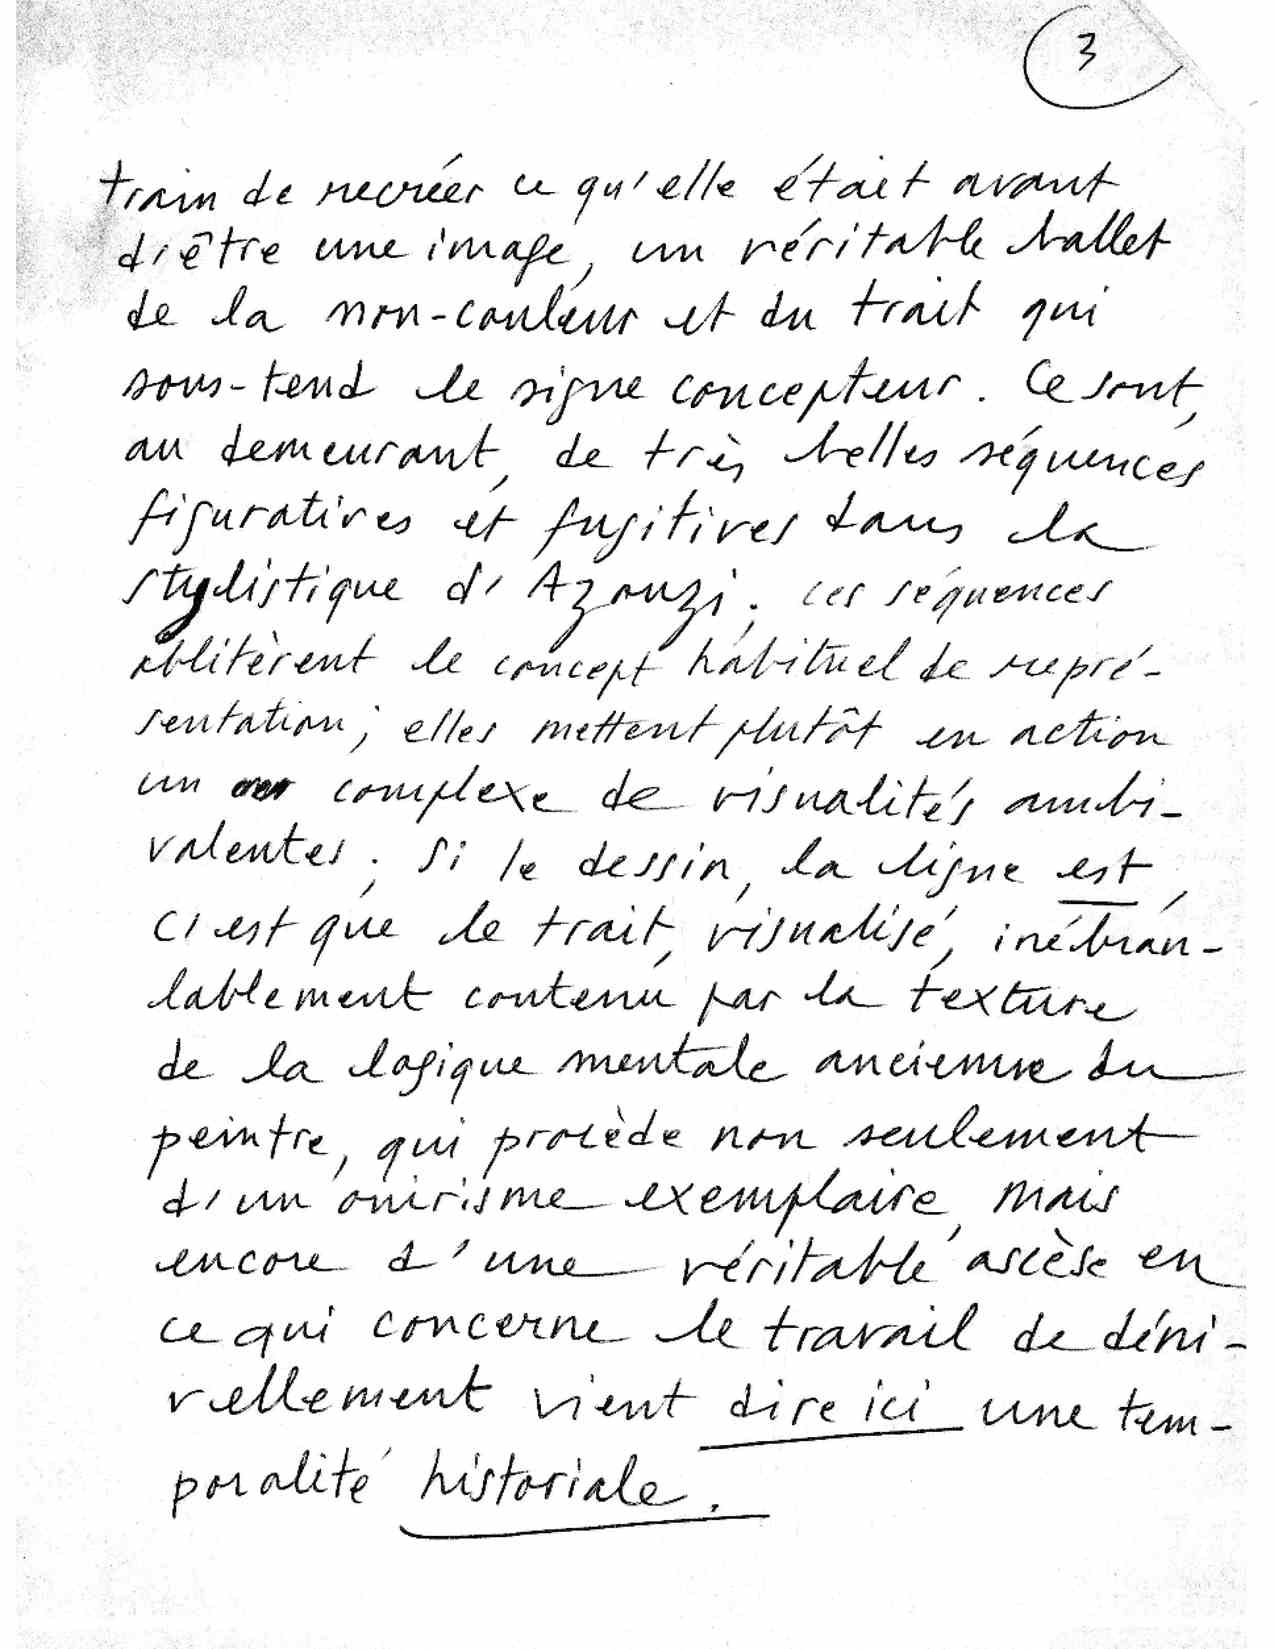 3
train de recréer ce qu'elle était avant
d'être une image, un véritable ballet
de la non-couleur et du trait qui
sous-tend le signe concepteur. Ce sont,
au demeurant, de très belles séquences
figuratives et fugitives dans la
stylistique d'Azouzi ; ces séquences
oblitèrent le concept habituel de repré-
sentation ; elles mettent plutôt en action
un complexe de visualités ambi-
valentes ; si le dessin, la ligne est,
c'est que le trait, visualisé, inébran-
lablement contenu par la texture
de la logique mentale ancienne du
peintre, qui procède non seulement
d'un onirisme exemplaire, mais
encore d'une véritable ascèse en
ce qui concerne le travail de déni-
vellement vient dire ici une tem-
poralité historiale.